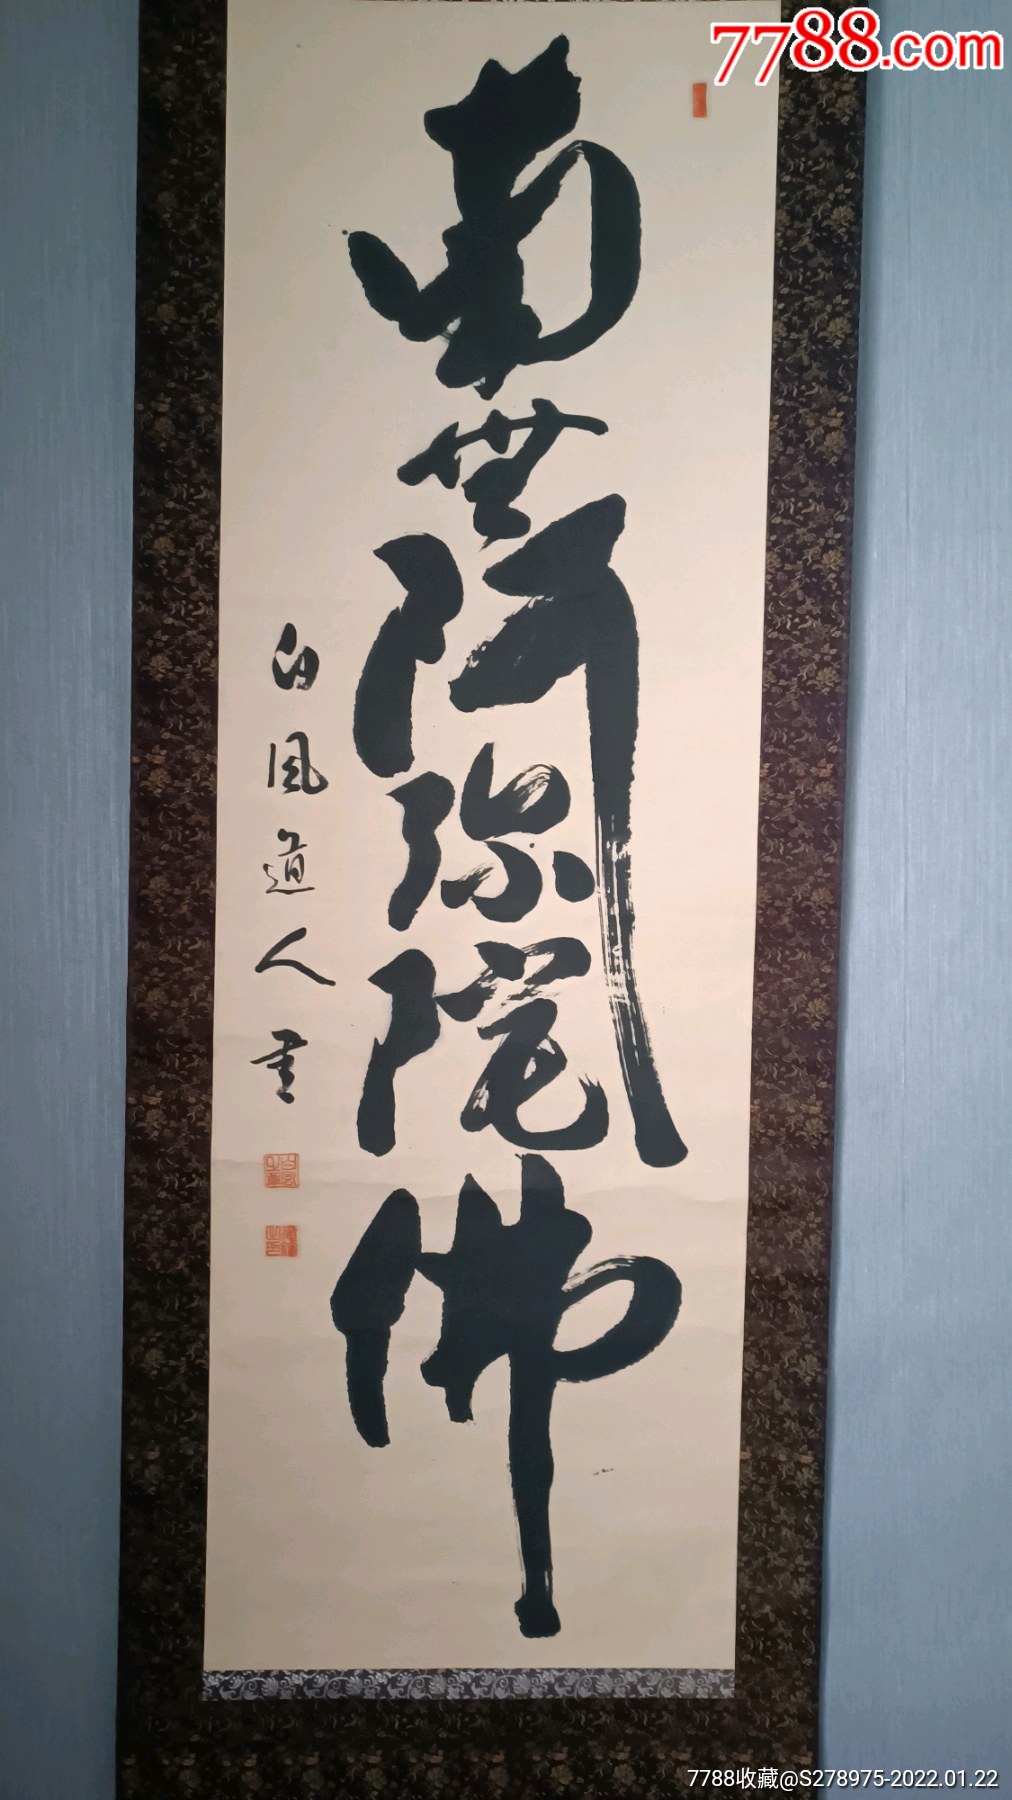 7788.com
南無阿弥陀佛
白風道人書
7788收藏@S278975-2022.01.22